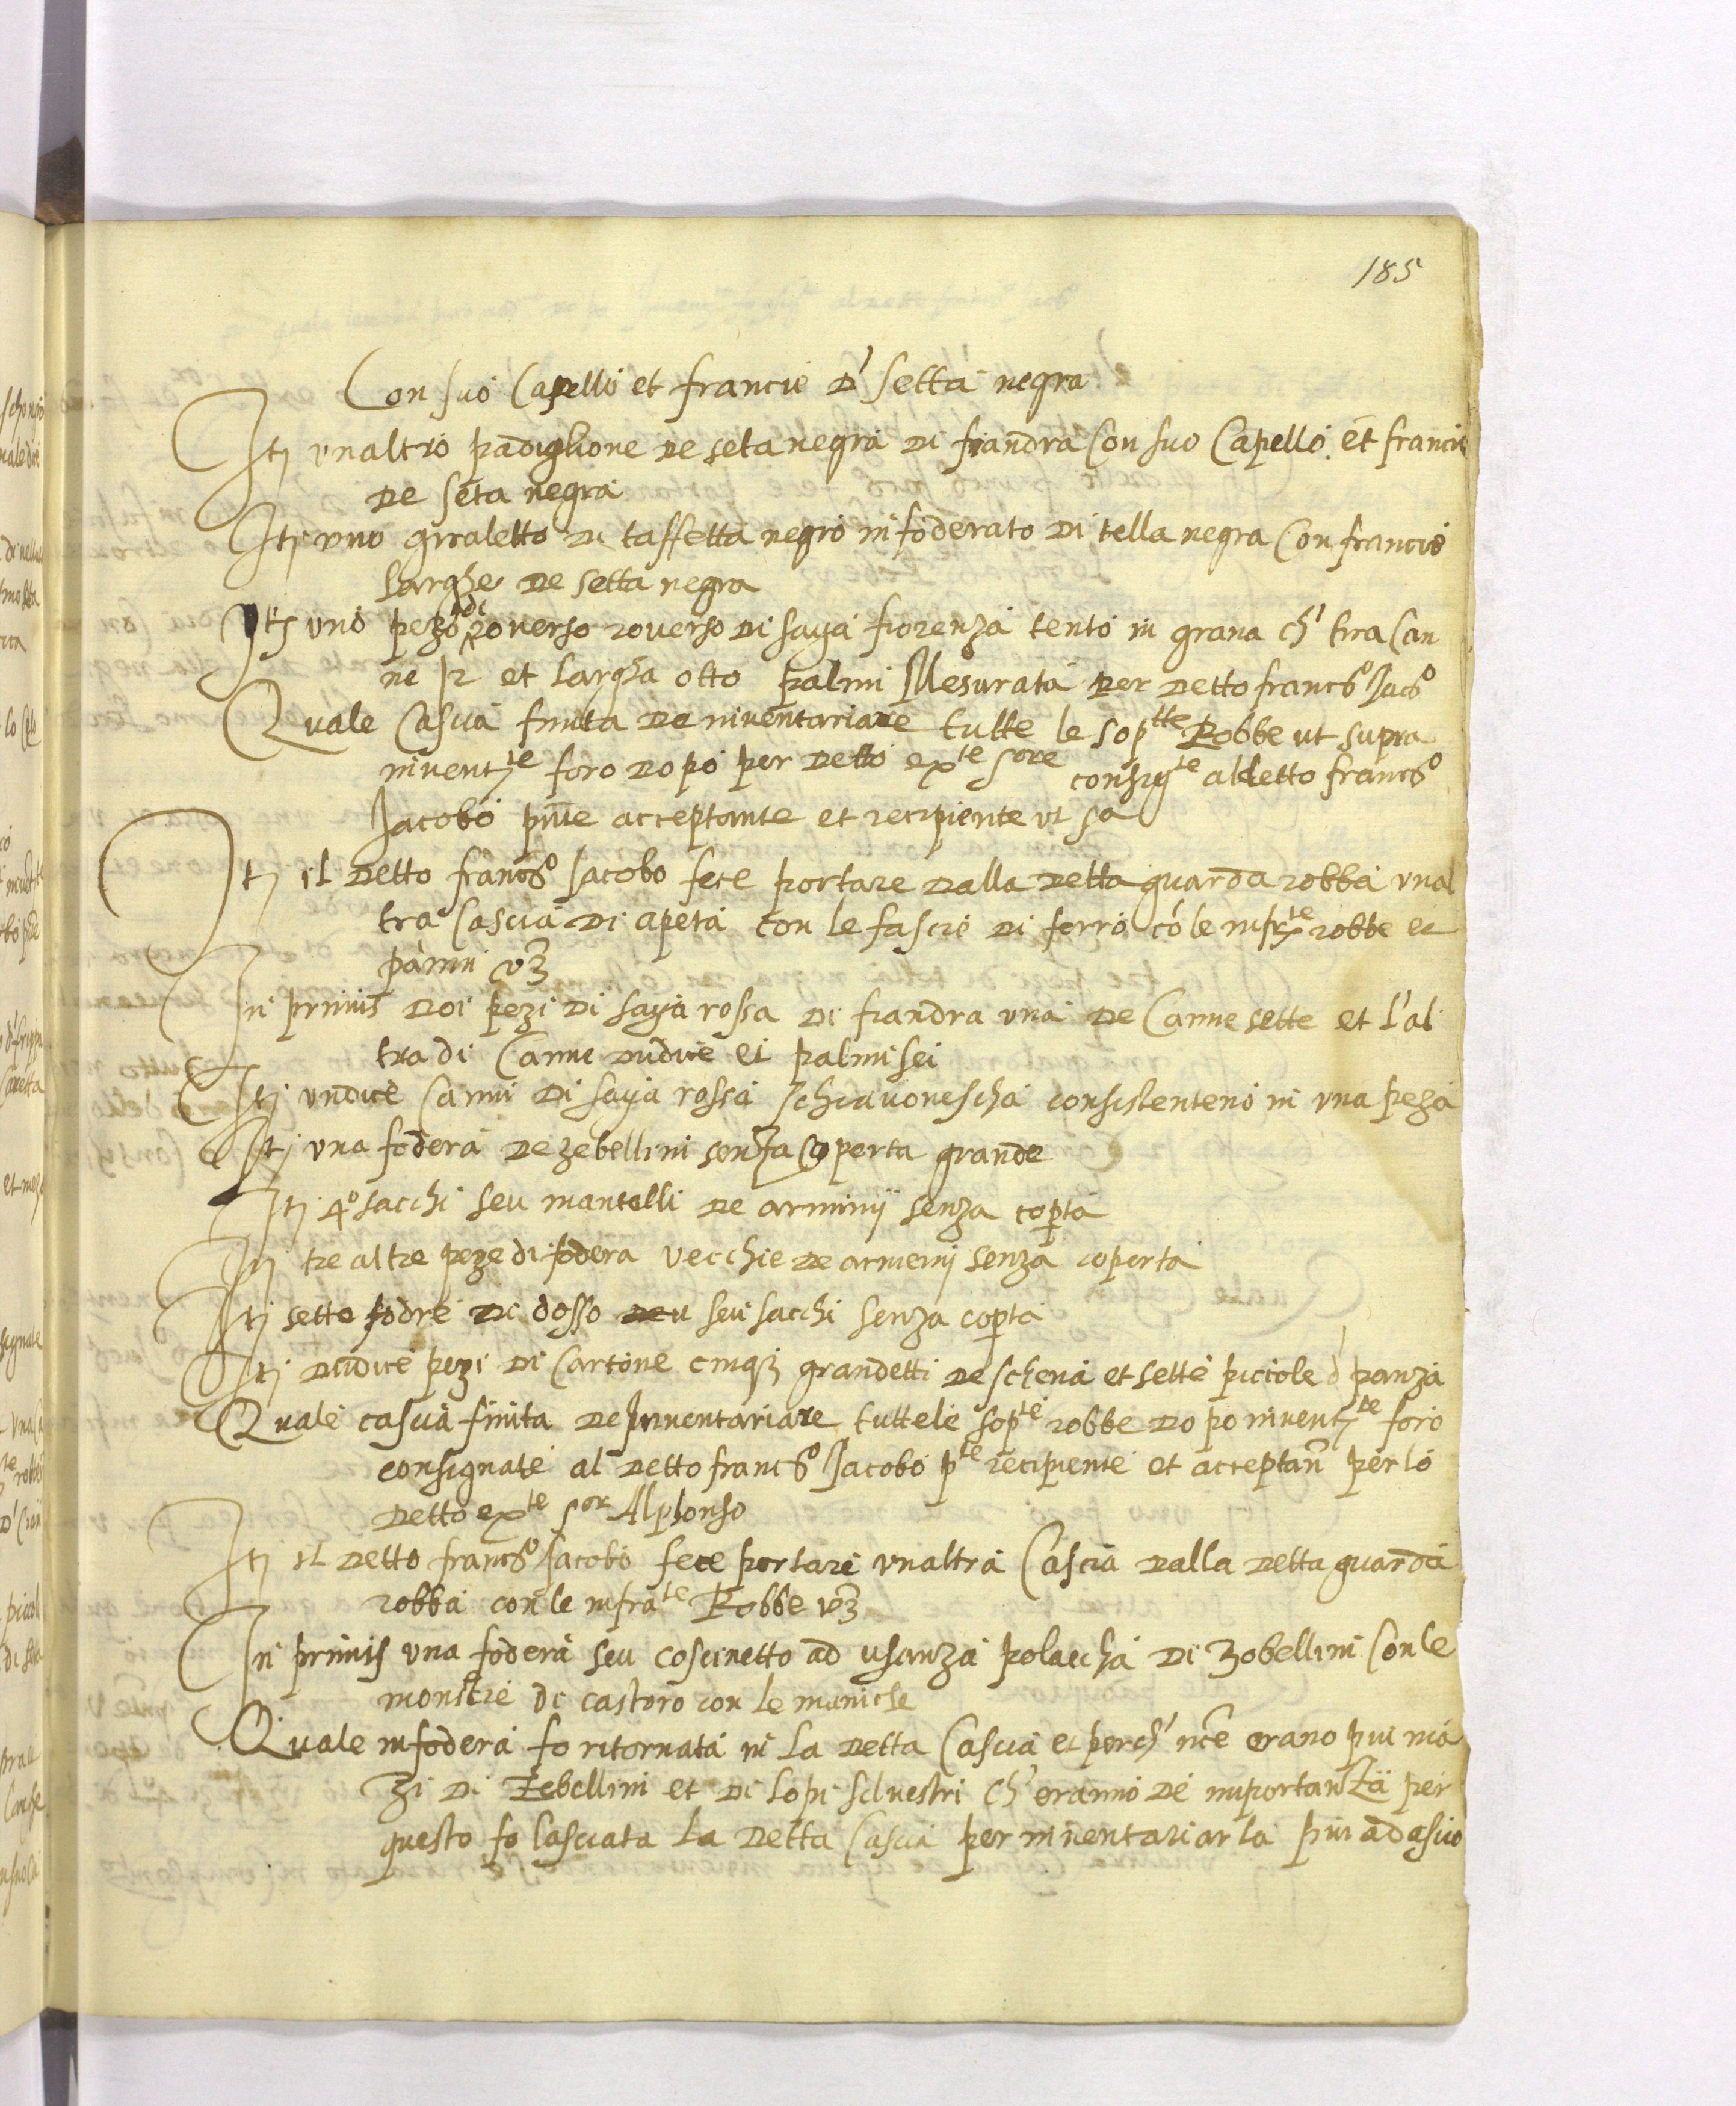 185
Con suo Capello et francie d' setta negra
Itj unaltro padiglione de seta negra di fiandra Con suo Capello et francie
de seta negra
Itj uno giraletto di taffetta negro infoderato di tella negra Con francie
larghe de setta negra
Itj uno pezo di roverso roverso di saya fiorenza tento in grana ch' tira Can
ne 12 et larga otto palmi Mesurata per detto francso Jacso
Quale Cascia finita de inventariare tutte le soptte Robbe ut supra
inventte foro dopo per detto exte sore consigte al detto francso
Jacobo pnte acceptante et recipiente ut sa
Itj il detto francso Jacobo fece portare dalla detta guarda robba unal
tra Cascia di apeta con le fascie di ferro co le infrte robbe et
panni vz
In primis doi pezi di saya rossa di fiandra una de Canne sette et l'al
tra di Canne dudice et palmi sei
Itj undice Canni di saya rossa schiavonescha consistenteno in una peza
Itj una fodera de zebellini senza Coperta grande
Itj 4o sacchi seu mantelli de arminij senza coperta
Itj tre altre peze di fodera vecchie de armenij senza coperta
Itj sette fodre di dosso seu sacchi senza coperta
Itj dudice pezi di Cartone cinq3 grandetti de schena et sette piccole d' panza
Quale cascia finita de Inventariare tutte le sopte robbe dopo inventte foro
consignate al detto francso Jacobo pte recipiente et acceptan per lo
detto exte sor Alphonso
Itj il detto francso Jacobo fece portare unaltra Cascia dalla detta guarda
robba con le infrate Robbe vz
In primis una fodera seu coscinetto ad usanza polaccha di Zobellini Con le
monstre di castoro con le maniche
Quale infodera fo ritornata in la detta Cascia et perch' nce erano piu ma
zi di Zebellini et di lopi silvestri ch' eranno de importanza per
questo fo lasciata la detta Cascia per inventariarla piu ad asio